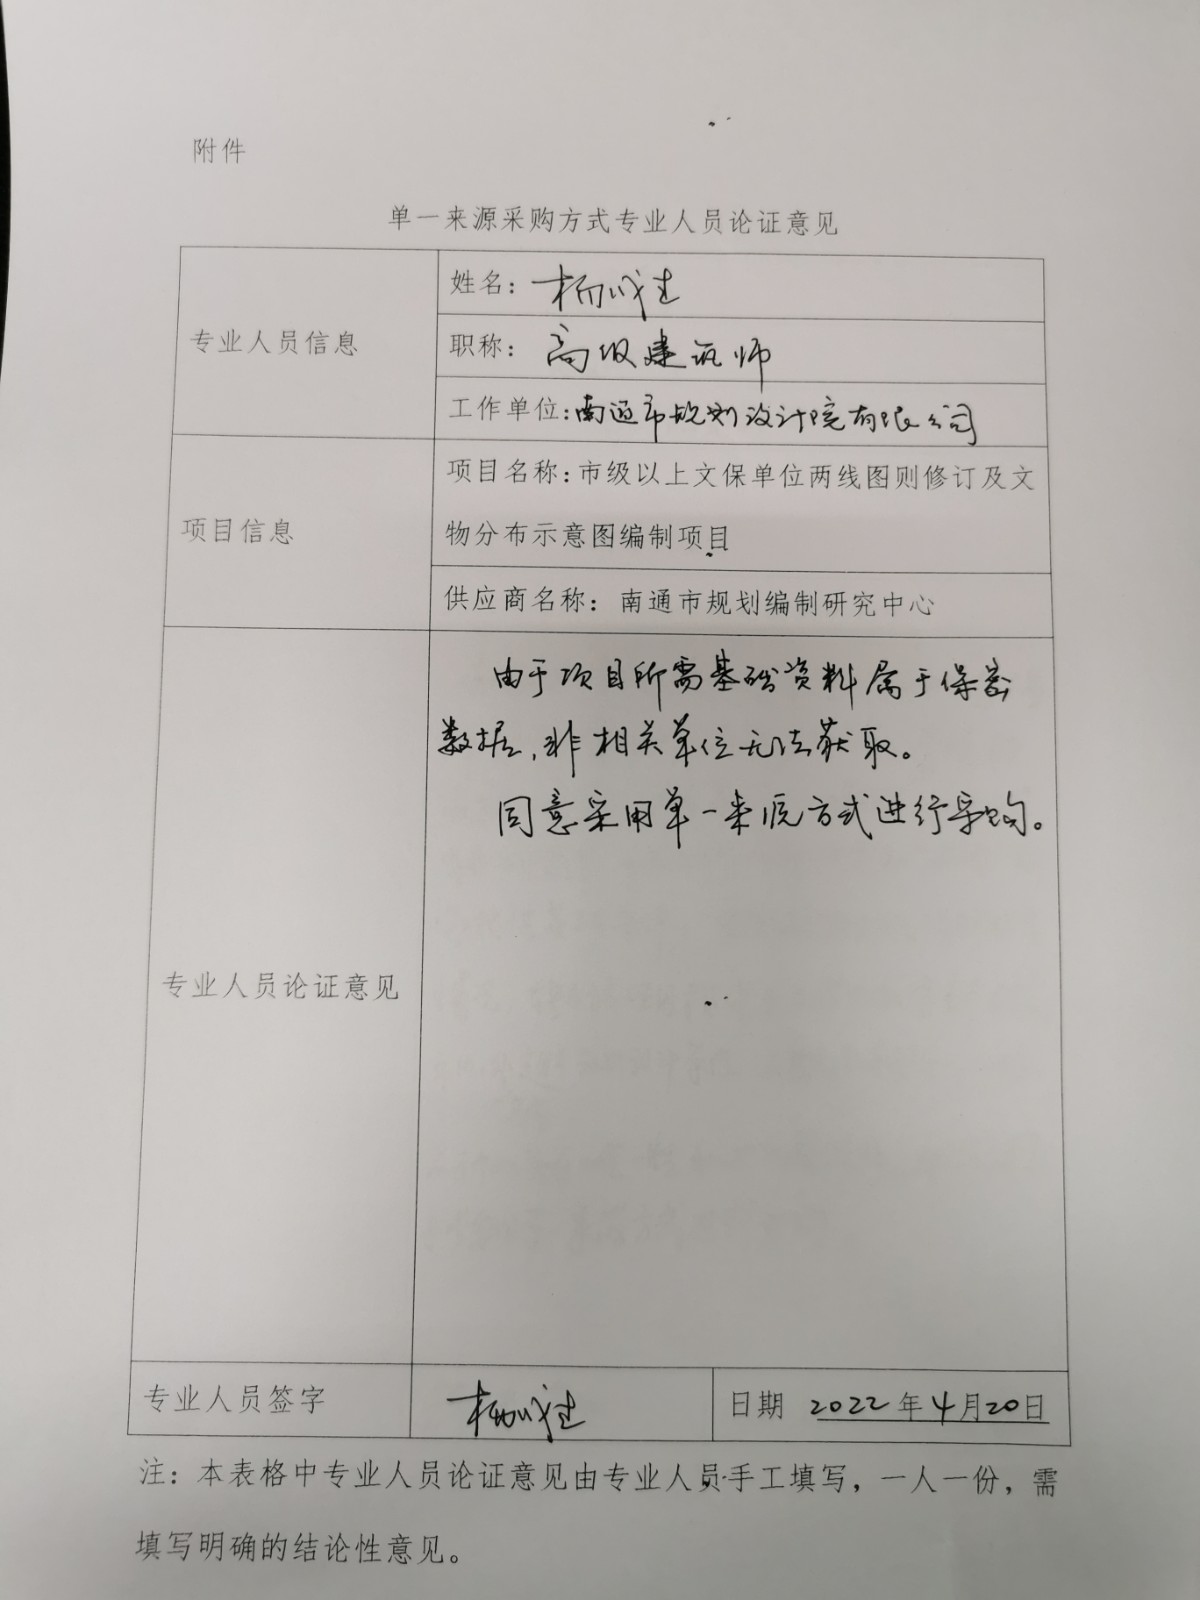 附件
单一来源采购方式专业人员论证意见
专业人员信息
姓名：杨
职称：高级建筑师
工作单位：南通市规划设计院有限公司
项目信息
项目名称：市级以上文保单位两线图则修订及文
物分布示意图编制项目
供应商名称：南通市规划编制研究中心
专业人员论证意见
由于项目所需基础资料属于保密
数据，非相关单位无法获取。
同意采用单一来源方式进行采购。
专业人员签字
杨
日期 2022年4月20日
注：本表格中专业人员论证意见由专业人员手工填写，一人一份，需
填写明确的结论性意见。